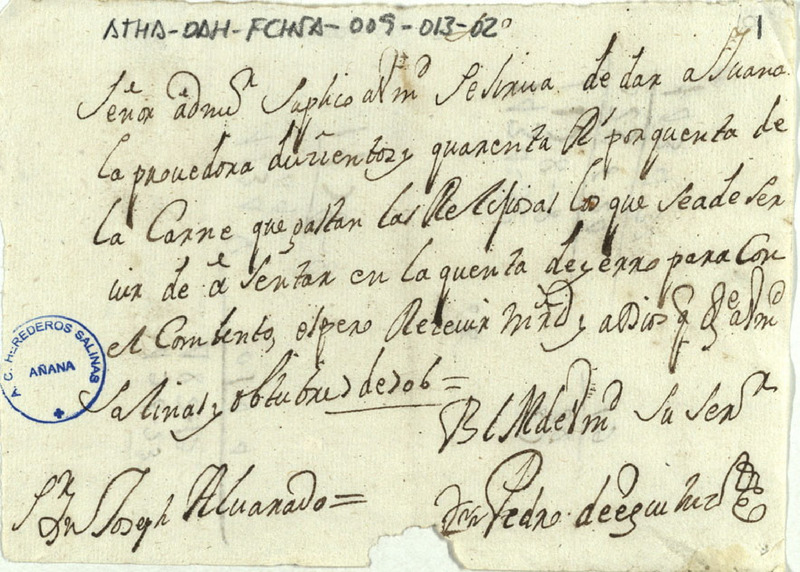 ATHA-DAH-FCHSA-009-013-02
1
Señor admor Suplico a Vmd Se sirva de dar a Juana
la proveedora ducientos y quarenta Rs por quenta de
la Carne que gastan las Religiosas los que se a de ser
uir de a sentar en la quenta de yerro para Con
el Combento, espero Receuir mrd y a Dios q ge a Vmd
Salinas y obtubre de 706=
BLM de Vmd Su serr
Sr Dn Joseph Aluarado=
Dn Pedro de
A. C. HEREDEROS SALINAS
AÑANA